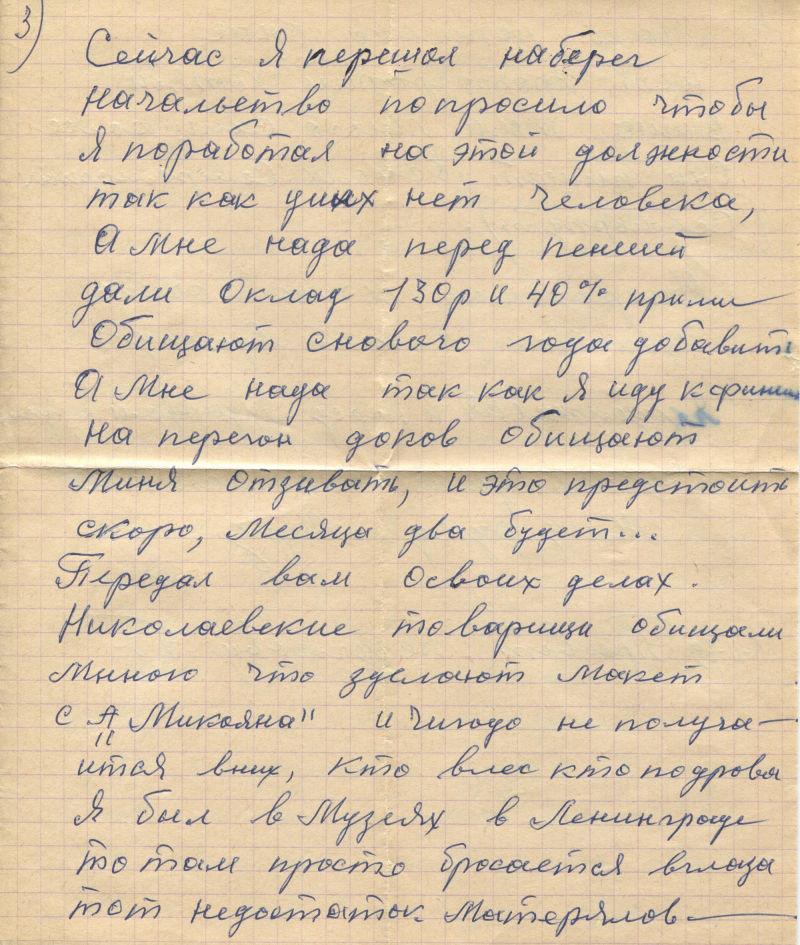 3)
Сейчас я перешол наберег
начальство попросило чтобы
я поработал на этой должности
так как уних нет человека,
А мне нада перед пенсией
дали Оклад 130р и 40%
Обищают снового года добавить
А мне нада так как я иду к
на перегон доков обищают
миня отзивать, и это предстоить
скоро, Месяца два будет...
Передал вам освоих делах.
Николаевские товарищи обищали
Мною что зделают макет
с "А Микояна" и чигодо не получа-
ится вних, кто влес кто подрова
Я был в Музеях в Ленинграде
то там просто бросается вглаза
тот недостаток Матерялов-